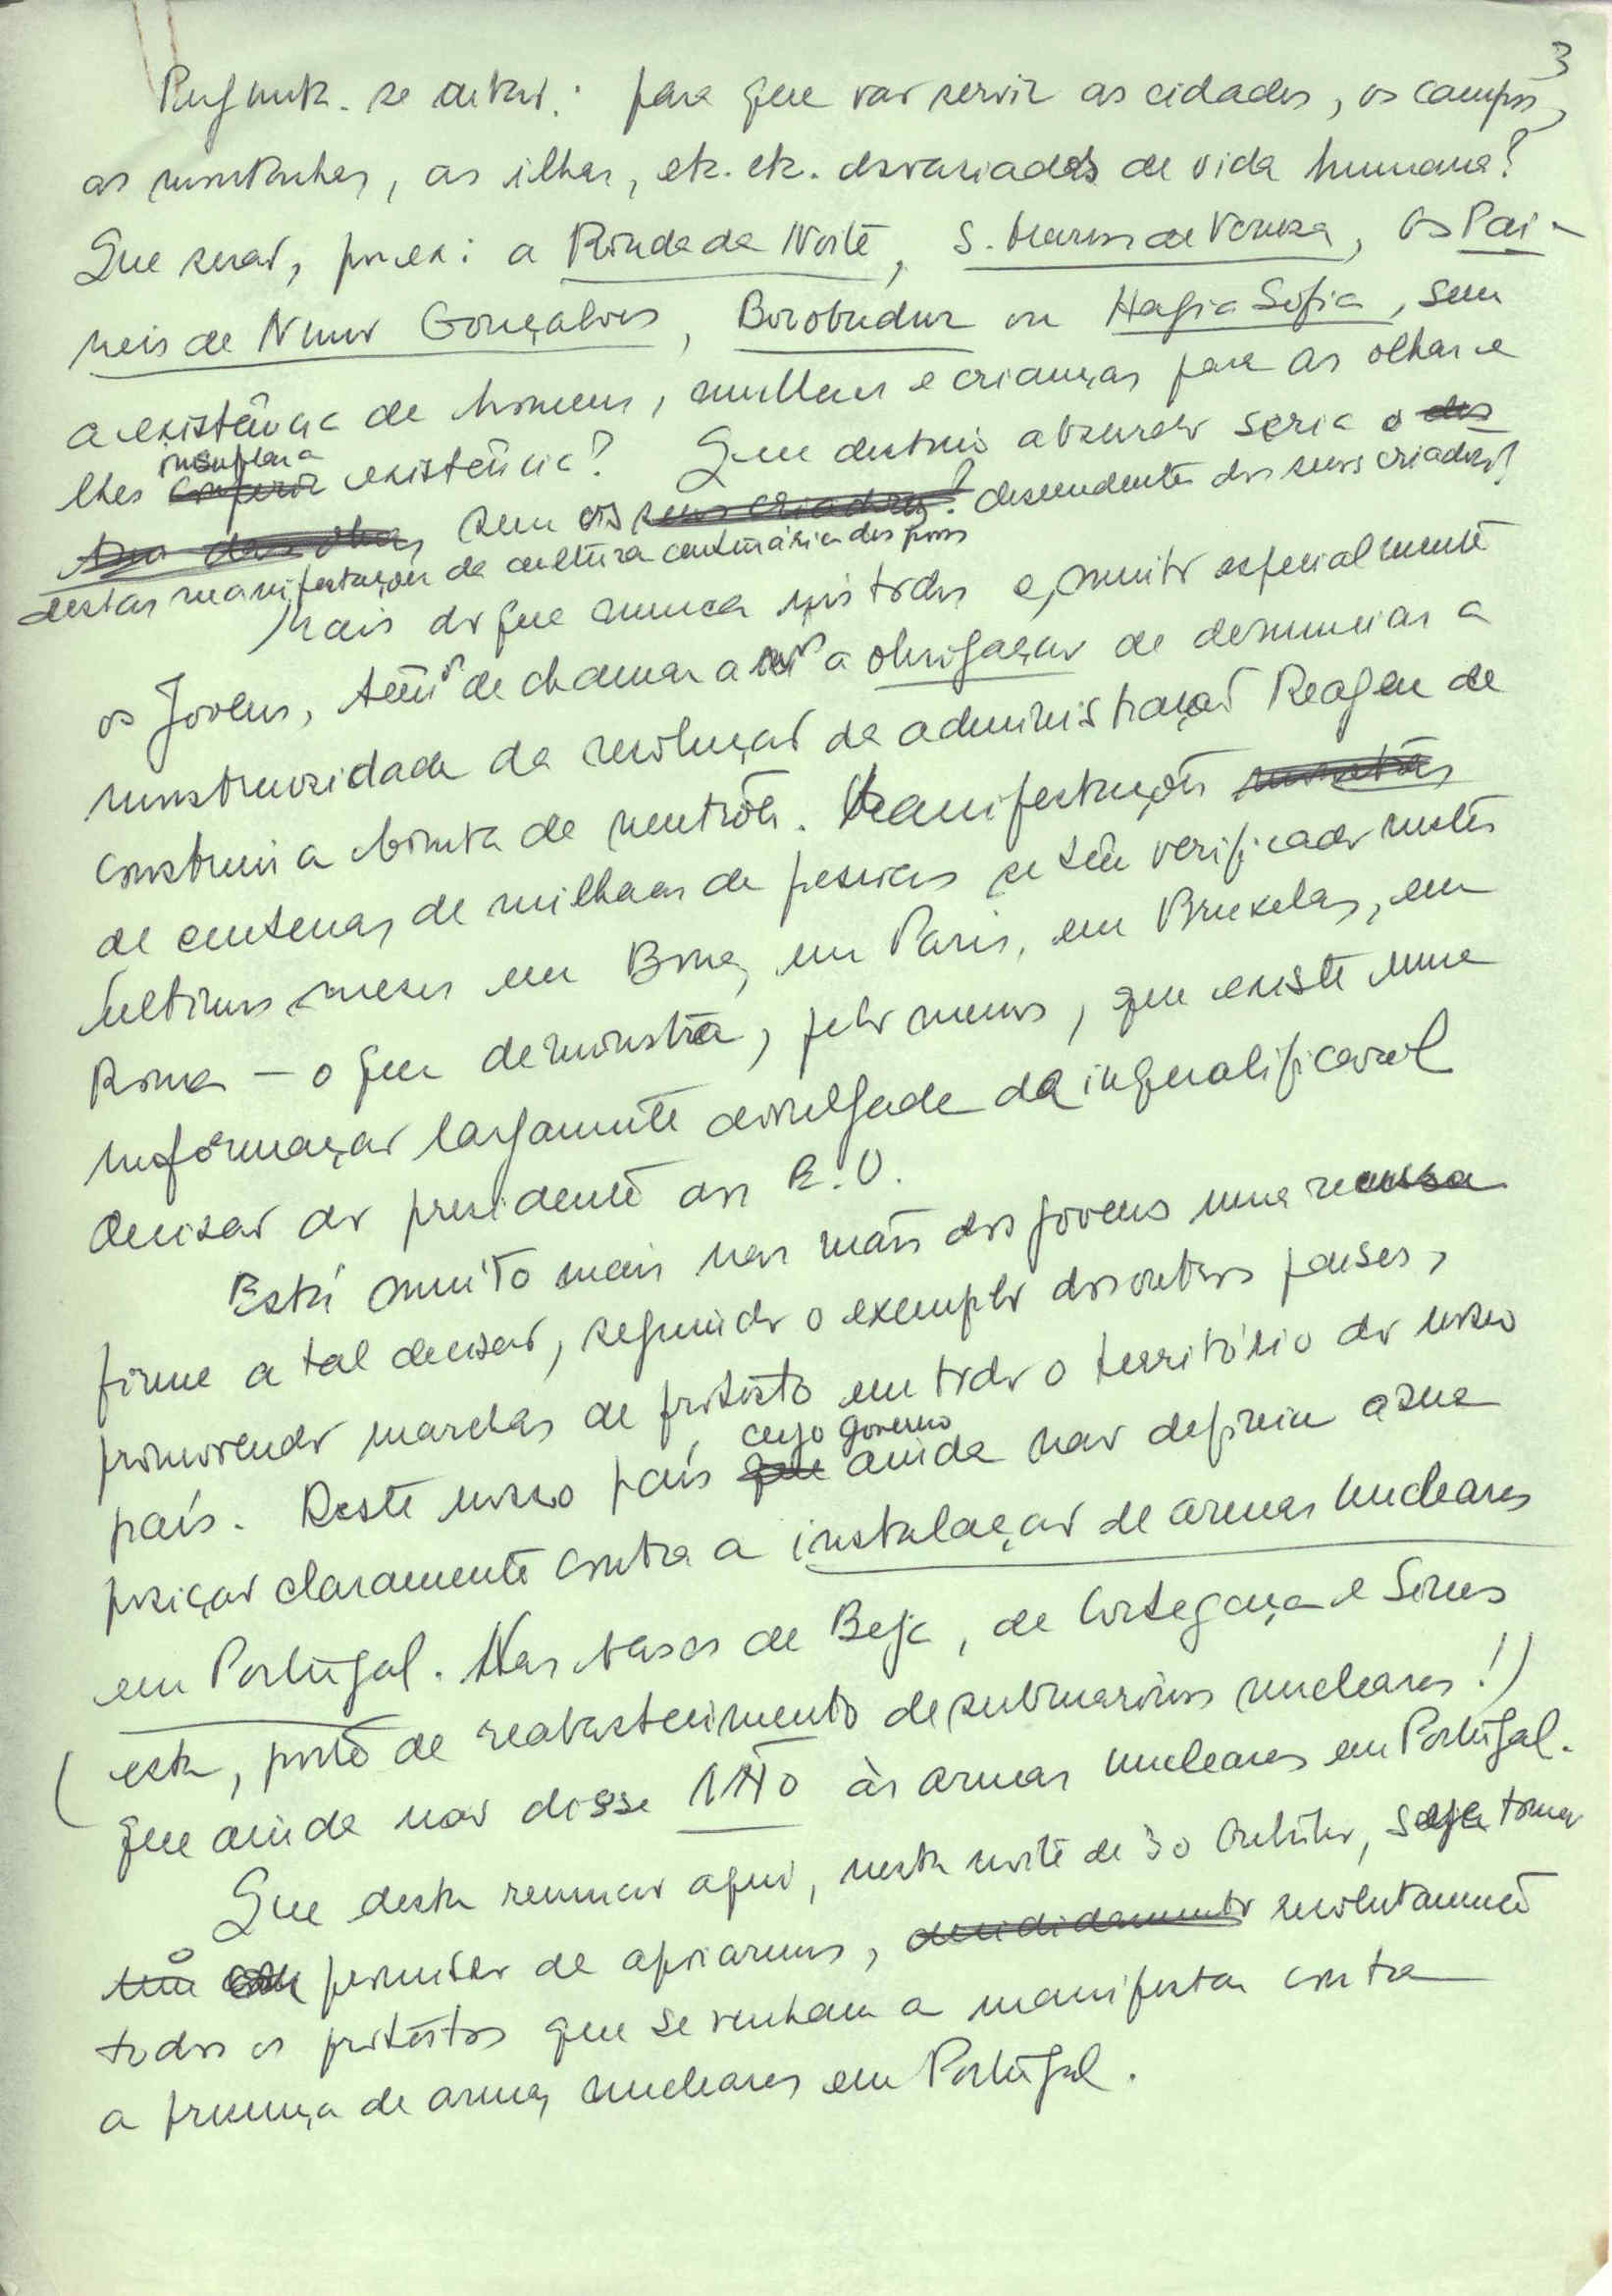 3
Pergunta-se então: para que vão servir as cidades, os campos,
as montanhas, as ilhas, etc. etc. esvaziados de vida humana?
Que serão, por ex: a Ronda da Noite, S. Marcos de Veneza, Os Pai-
neis de Nuno Gonçalves, Borobudur ou Hagia Sofia, sem
a existência de homens, mulheres e crianças para as olhar e
lhes insuflar a
conferir existência? Que destino absurdo seria o des
sem os seus criadores? descendentes dos seus criadores?
destas manifestações da cultura centenária dos povos
Mais do que nunca nós todos e, muito especialmente
os Jovens, temos de chamar a nós a obrigação de denunciar a
monstruosidade da resolução da administração Reagan de
construir a bomba de neutrões. Manifestações
de centenas de milhares de pessoas se têm verificado nestes
últimos meses em Bona, em Paris, em Bruxelas, em
Roma — o que demonstra, pelo menos, que existe uma
informação largamente divulgada da inqualificável
decisão do presidente dos E.U.
Está muito mais nas mãos dos jovens uma recusa
firme a tal decisão, seguindo o exemplo dos outros países,
promovendo marchas de protesto em todo o território do nosso
cujo governo
país. Deste nosso país que ainda não definiu a sua
posição claramente contra a instalação de armas nucleares
em Portugal. Nas bases de Beja, de Cortegaça e Sines
(esta, porto de reabastecimento de submarinos nucleares!)
que ainda não disse NÃO às armas nucleares em Portugal.
Que desta reunião aqui, nesta noite de 30 Outubro, seja tomada
o
um compromisso de apoiarmos, decididamente resolutamente
todos os protestos que se venham a manifestar contra
a presença de armas nucleares em Portugal.